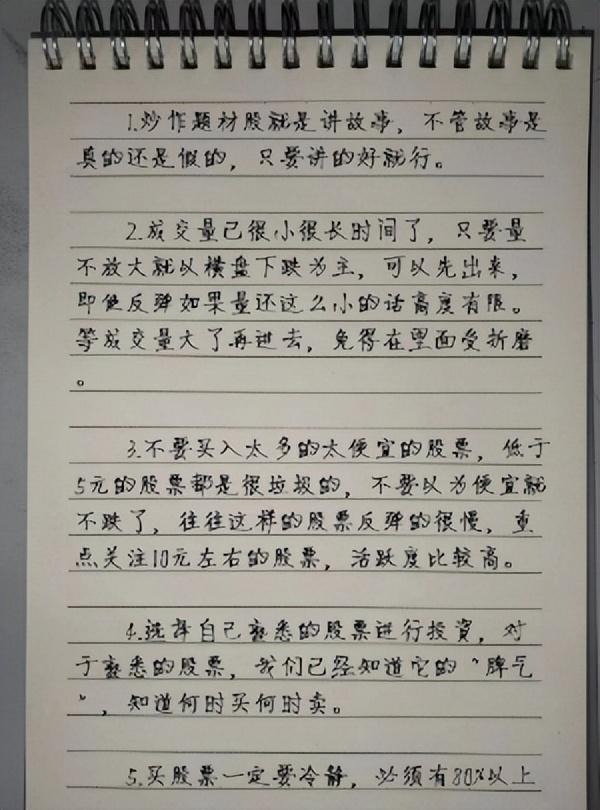 1.炒作题材股就是讲故事，不管故事是
真的还是假的，只要讲的好就行。
2.成交量已很小很长时间了，只要量
不放大就以横盘下跌为主，可以先出来，
即使反弹如果量还这么小的话高度有限。
等成交量大了再进去，免得在里面受折磨
。
3.不要买入太多的太便宜的股票，低于
5元的股票都是很垃圾的，不要以为便宜就
不跌了，往往这样的股票反弹的很慢，重
点关注10元左右的股票，活跃度比较高。
4.选择自己熟悉的股票进行投资，对
于熟悉的股票，我们已经知道它的“脾气
”，知道何时买何时卖。
5.买股票一定要冷静，必须有80%以上